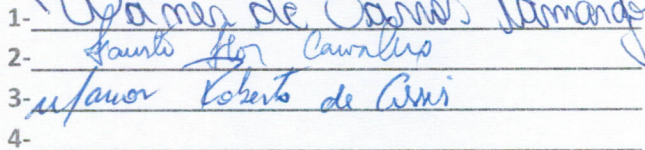 1- de Camargo
2- Fausto Flor Carvalho
3- Roberto de Assis
4-